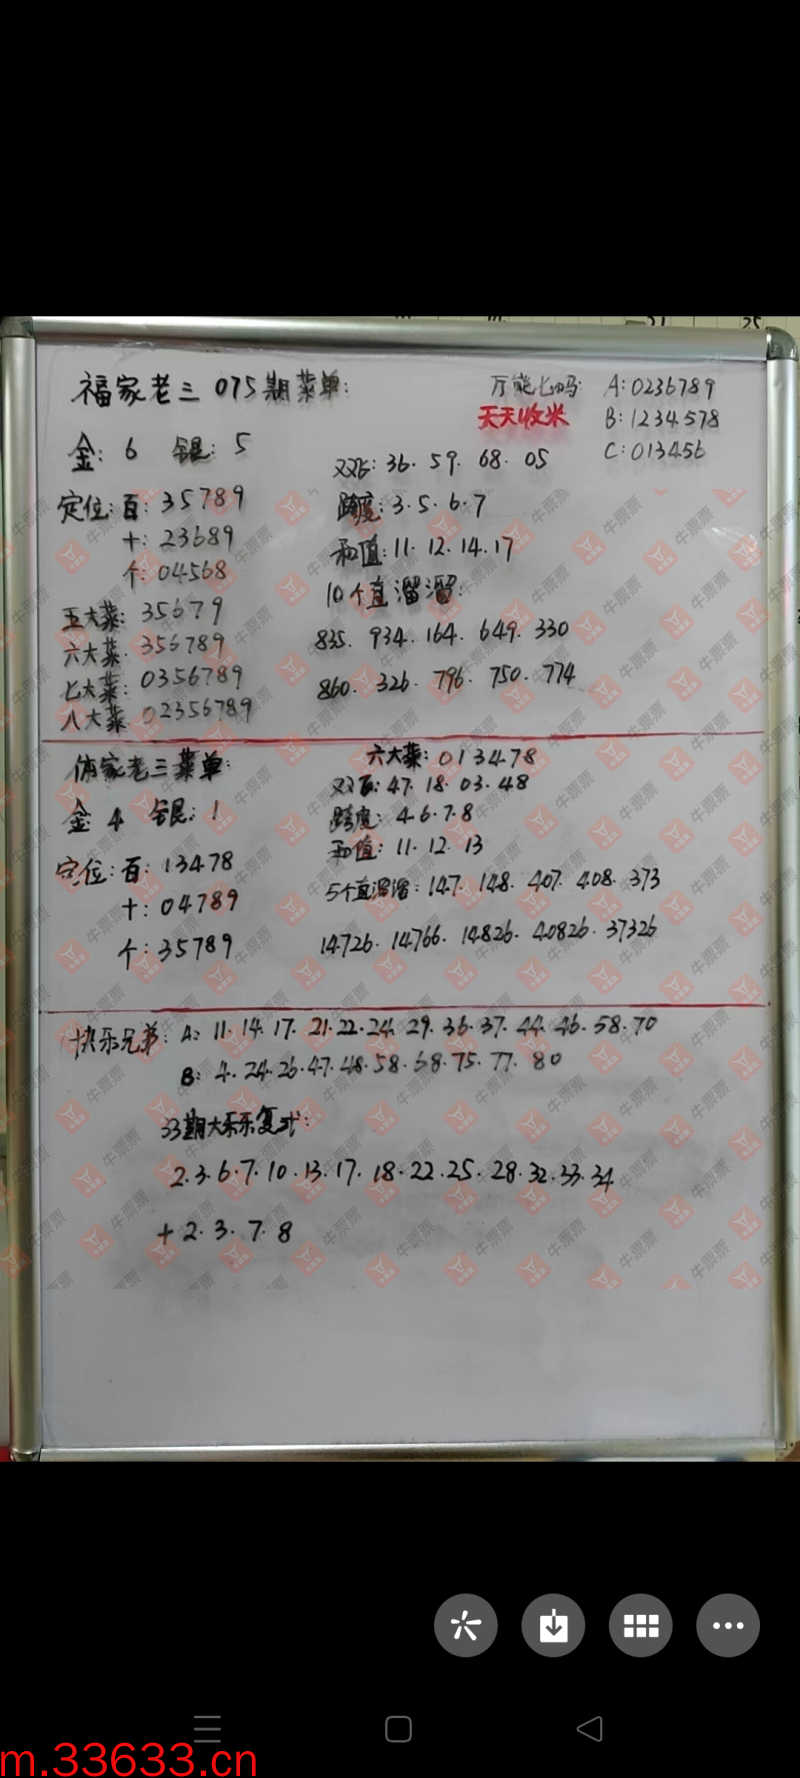 福家老三 075期菜单:
万能七码: A:0236789
天天收米 B:1234578
C:013456
金: 6 银: 5
双飞: 36. 59. 68. 05
定位: 百: 35789
跨度: 3.5.6.7
十: 23689
和值: 11. 12. 14. 17
个: 04568
10个直溜溜:
五大菜: 35679
835. 934. 164. 649. 330
六大菜: 356789
七大菜: 0356789
860. 326. 796. 750. 774
八大菜 02356789
体家老三菜单:
六大菜: 013478
双飞: 47. 18. 03. 48
金: 4 银: 1
跨度: 4.6.7.8
和值: 11. 12. 13
定位: 百: 13478
5个直溜溜: 147. 148. 407. 408. 373
十: 04789
个: 35789
14726. 14766. 14826. 40826. 37326
快乐兄弟: A: 11. 14. 17. 21. 22. 24. 29. 36. 37. 44. 46. 58. 70
B: 4. 24. 26. 47. 48. 58. 68. 75. 77. 80
33期大乐乐复式:
2. 3. 6. 7. 10. 13. 17. 18. 22. 25. 28. 32. 33. 34
+ 2. 3. 7. 8
牛票票
m.33633.cn